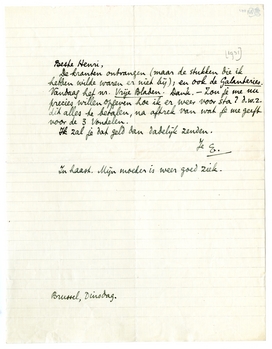 [1931]
Beste Henri,
De kranten ontvangen (maar de stukken die ik
hebben wilde waren er niet bij), en ook de Galanteries.
Vandaag het nr. Vrije Bladen. Dank. – Zou je me nu
precies willen opgeven hoe ik er weer voor sta? d.w.z.
dit alles te betalen, na aftrek van wat je me geeft
voor de 3 Vondelen.
Ik zal je dat geld dan dadelijk zenden.
Je E.
In haast. Mijn moeder is weer goed ziek.
Brussel, Dinsdag.